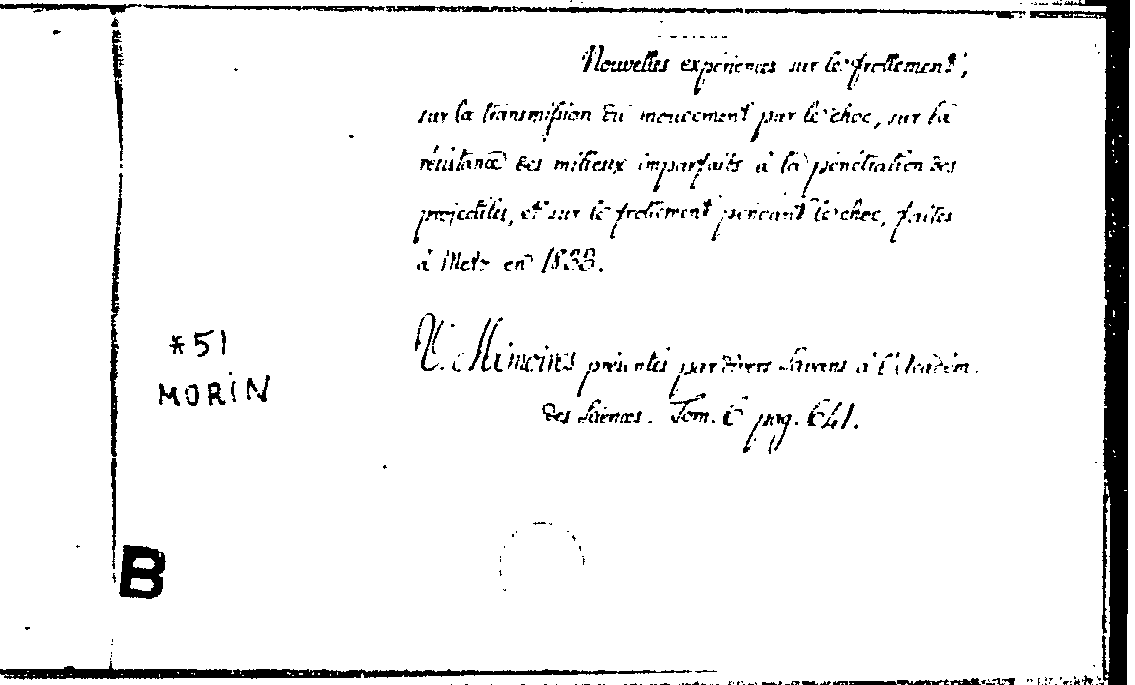 Nouvelles expériences sur le frottement,
sur la transmission du mouvement par le choc, sur la
résistance des milieux imparfaits à la pénétration des
projectiles, et sur le frottement pendant le choc, faites
à Metz en 1833.
*51
MORIN
V. Mémoires présentés par divers Savans à l'Académ.
des Sciences. Tom. 6 pag. 641.
B